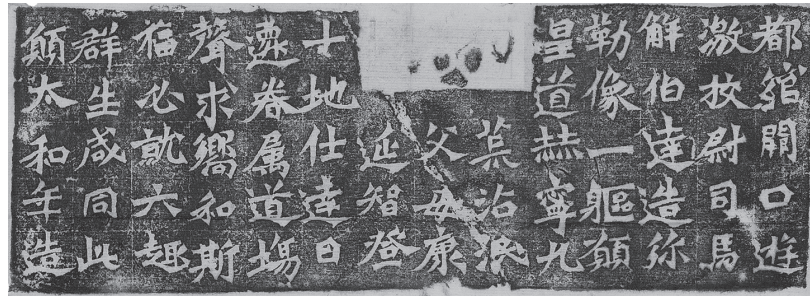 都綰闕口遊
激校尉司馬
解伯達造弥
勒像一軀願
皇道赫寧九
荒沾泯
父母康
延智登
十地仕達日
遷眷属道塲
聲求嚮和斯
福必就六趣
群生咸同此
願太和年造